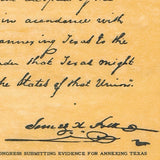 in accordance with
annexing Texas to the
order that Texas might
the States of that Union.
James K Polk
CONGRESS SUBMITTING EVIDENCE FOR ANNEXING TEXAS